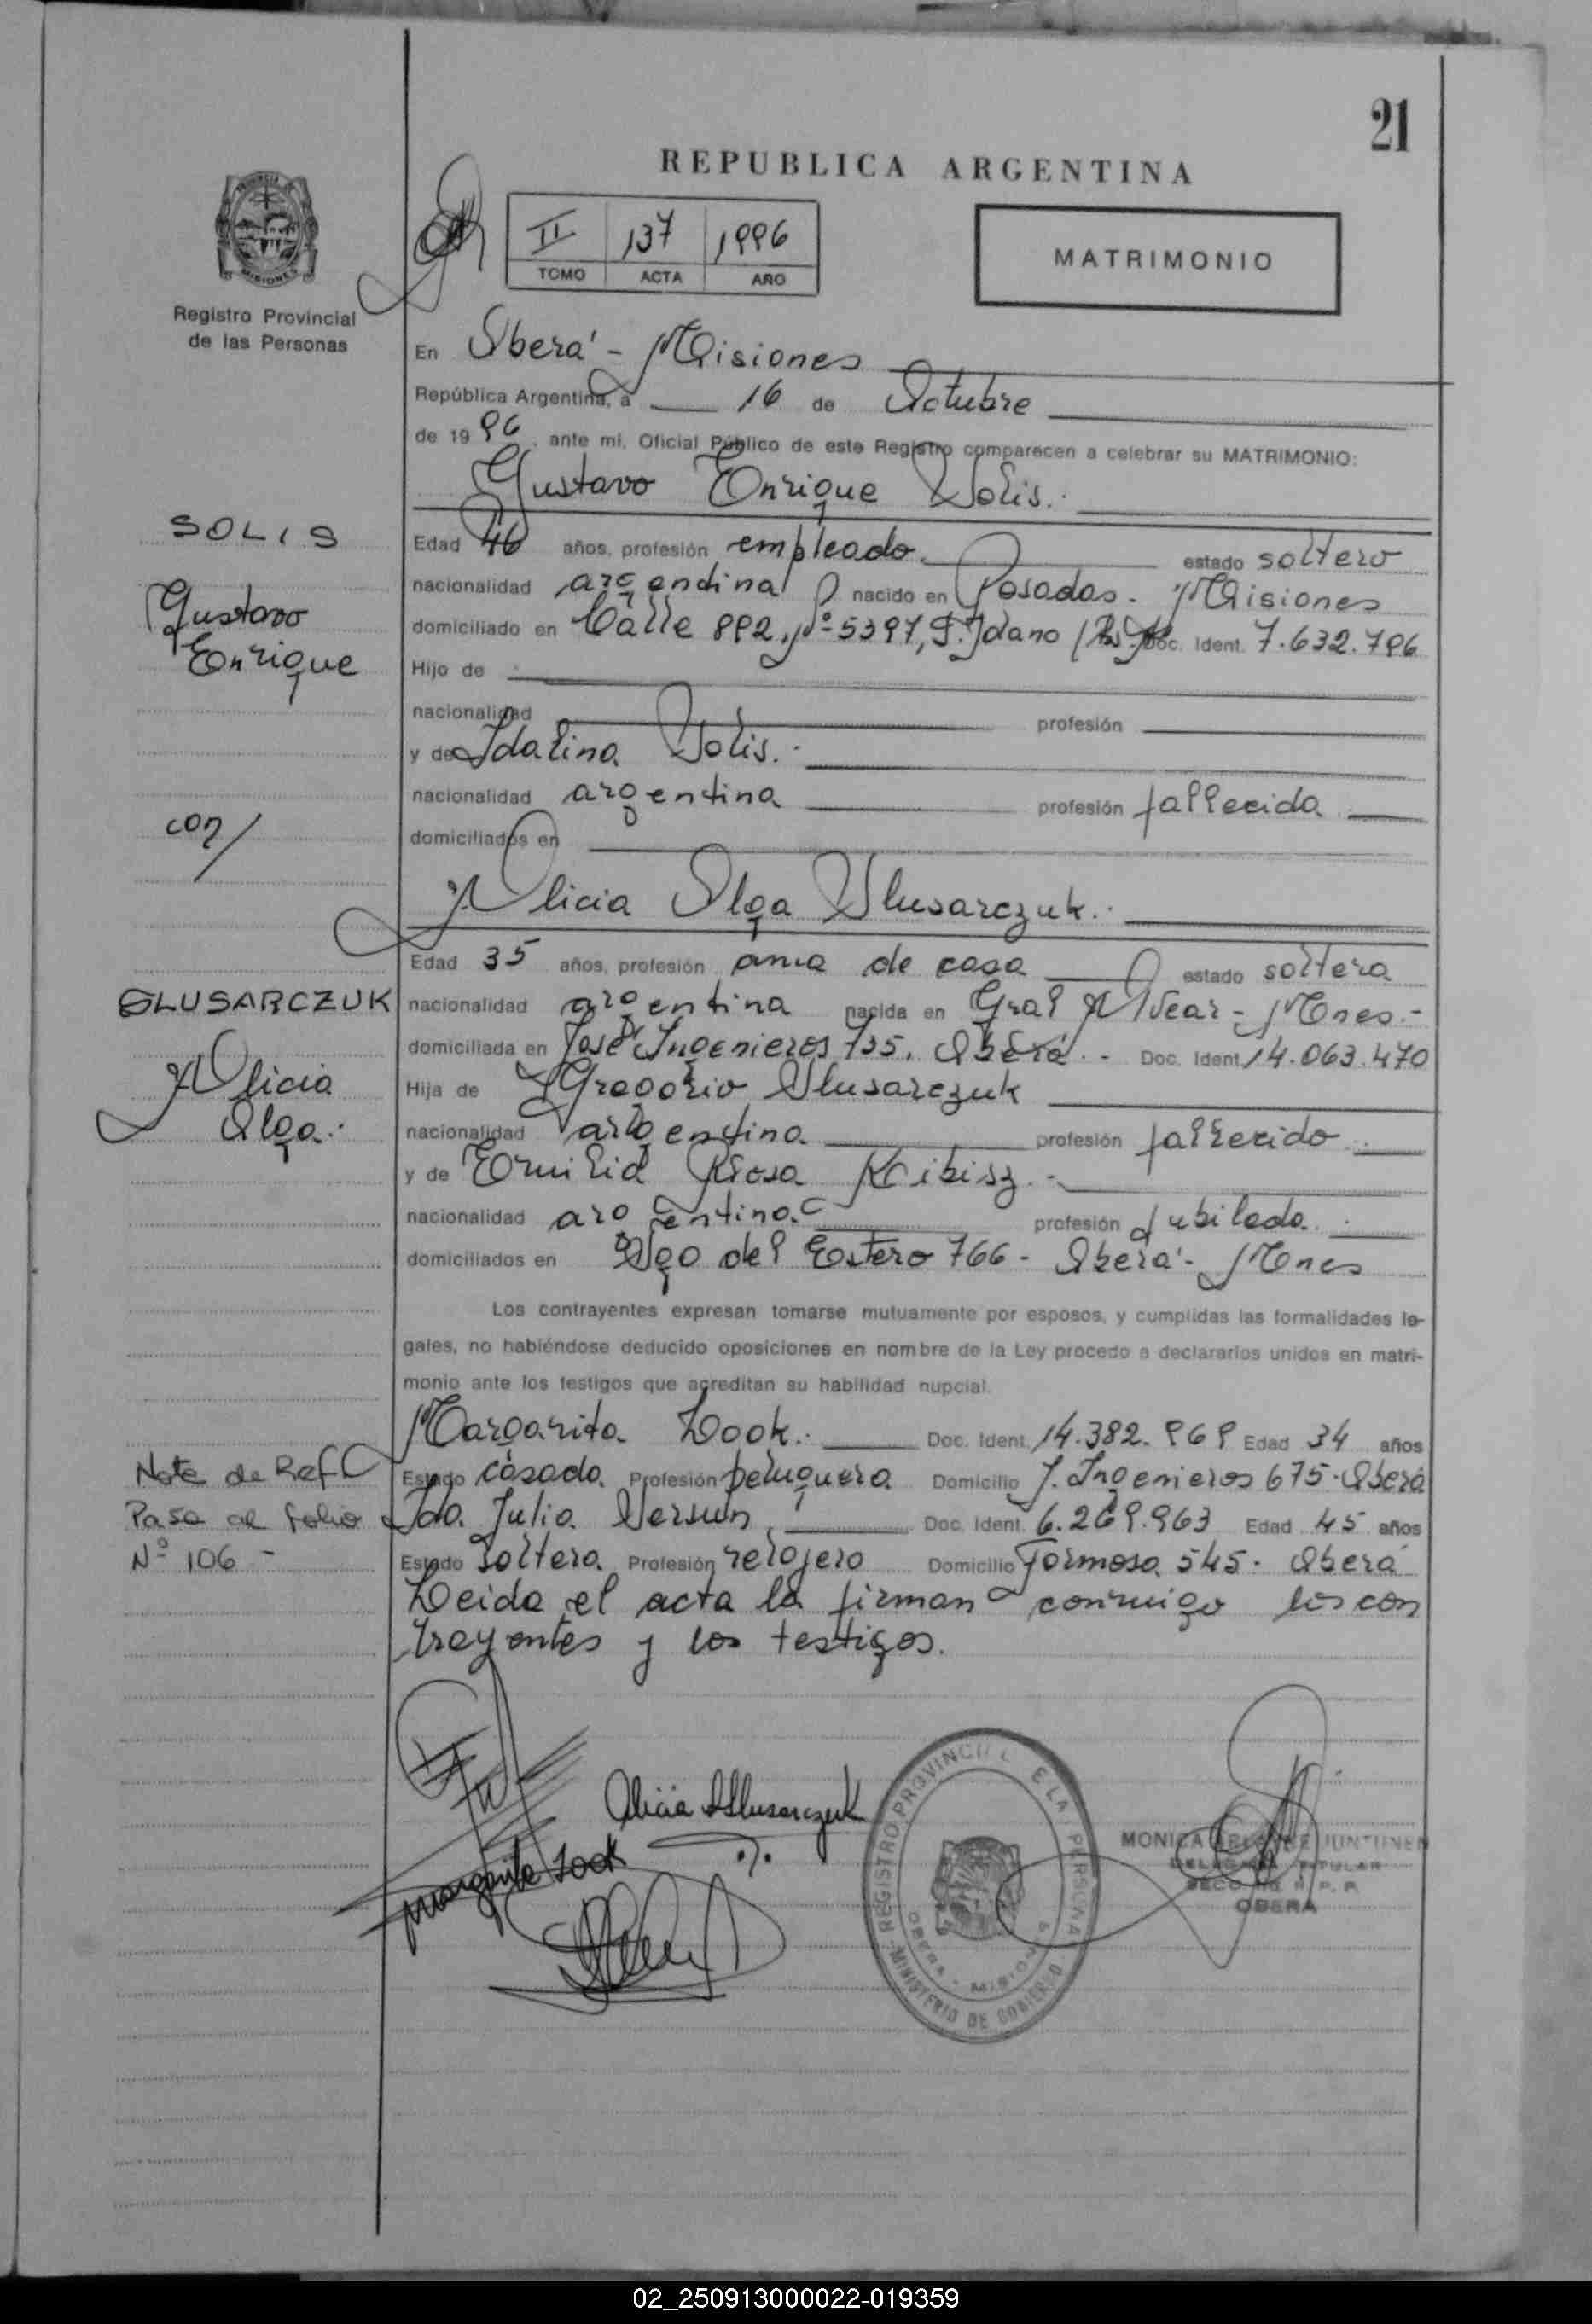 21
REPUBLICA ARGENTINA
II 137 1996
TOMO ACTA AÑO
MATRIMONIO
Registro Provincial
de las Personas
En Oberá - Misiones
República Argentina, a 16 de Octubre
de 1996, ante mi, Oficial Público de este Registro comparecen a celebrar su MATRIMONIO:
Gustavo Enrique Solis.
SOLIS
Gustavo
Enrique
con/
SLUSARCZUK
Alicia
Olga.
Edad 46 años, profesión empleado estado soltero
nacionalidad argentina nacido en Posadas - Misiones
domiciliado en Calle 892, Nº 5397, Doc. Ident. 7.632.796
Hijo de
nacionalidad profesión
y de Idalina Solis.
nacionalidad argentina profesión fallecida
domiciliados en
Alicia Olga Slusarczuk.
Edad 35 años, profesión ama de casa estado soltera
nacionalidad argentina nacida en Gral Alvear - Mnes.-
domiciliada en José Ingenieros 735, Oberá.- Doc. Ident. 14.063.470
Hija de Gregorio Slusarczuk
nacionalidad argentina profesión fallecido
y de Emilia Rosa Kibisz.-
nacionalidad argentina profesión Jubilada.
domiciliados en Sgo del Estero 766 - Oberá - Mnes
Los contrayentes expresan tomarse mutuamente por esposos, y cumplidas las formalidades le-
gales, no habiéndose deducido oposiciones en nombre de la Ley procedo a declararlos unidos en matri-
monio ante los testigos que acreditan su habilidad nupcial.
Margarita Look. Doc. Ident. 14.382.969 Edad 34 años
Estado casada Profesión peluquera Domicilio J. Ingenieros 675 - Oberá
Ida Julia Doc. Ident. 6.269.963 Edad 45 años
Estado soltera Profesión relojero Domicilio Formosa 545 - Oberá
Leida el acta la firman conmigo los con
trayentes y los testigos.
Nota de Ref
Pasa al folio
Nº 106 -
Alicia Slusarczuk
Margarita Look
REGISTRO PROVINCIAL DE LAS PERSONAS
OBERA - MISIONES
MINISTERIO DE GOBIERNO
MONICA JUNTUNEN
DELEGADA TITULAR
OBERA
02_250913000022-019359